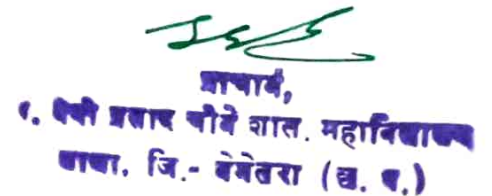 प्राचार्य,
देवी प्रसाद चौबे शास. महाविद्यालय
साजा, जि.- बेमेतरा (छ. ग.)